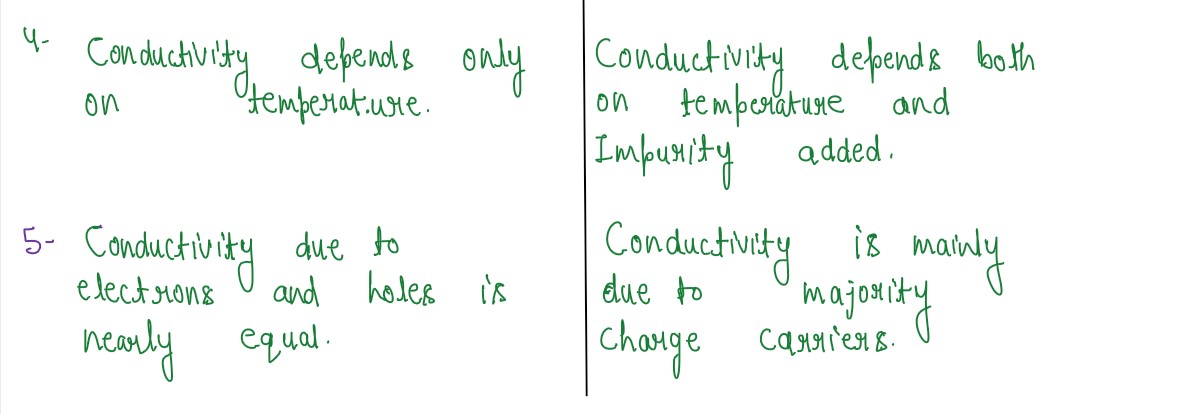 4- Conductivity depends only
on temperat.ure.
Conductivity depends both
on temperature and
Impurity added.
5- Conductivity due to
electrons and holes is
nearly equal.
Conductivity is mainly
due to majority
charge carriers.